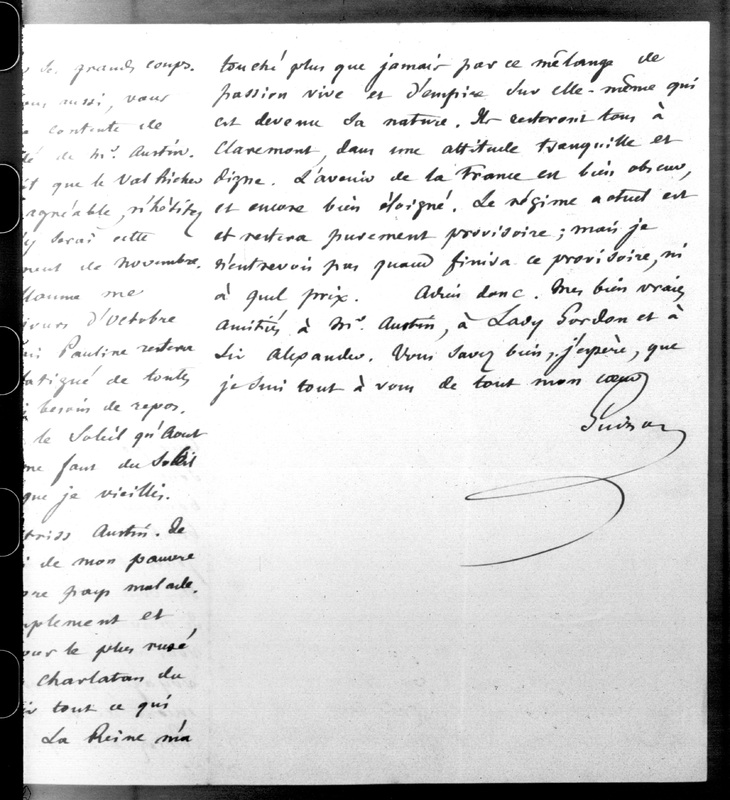 de grands coups.
aussi, vous
contente de
de Mrs. Austin.
que le Val Richer
agréable, n'hésitez
serai cette
de novembre.
me
jours d'Octobre
Pauline restera
fatigué de toutes
besoin de repos.
le Soleil qu'Aout
me faut du Soleil
que je vieillis.
Austin. Je
de mon pauvre
pays malade.
et
pour le plus rusé
charlatan du
tout ce qui
La Reine m'a
touché plus que jamais par ce mélange de
passion vive et d'empire sur elle-même qui
est devenu sa nature. Ils resteront tous à
Claremont, dans une attitude tranquille et
digne. L'avenir de la France est bien obscur,
et encore bien éloigné. Le régime actuel est
et restera purement provisoire ; mais je
n'entrevois pas quand finira ce provisoire, ni
à quel prix. Adieu donc. Mes bien vraies
amitiés à Mr. Austin, à Lady Gordon et à
Sir Alexander. Vous savez bien, j'espère, que
je suis tout à vous de tout mon cœur
Guizot